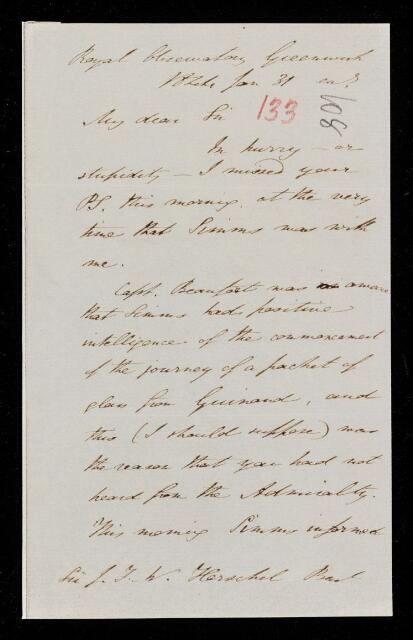 Royal Observatory Greenwich
Jan 31
My dear Sir
133
108
In hurry – or
stupidity – I missed your
P.S. this morning, at the very
time that Simms was with
me.
Capt. Beaufort was aware
that Simms had positive
intelligence of the commencement
of the journey of a packet of
glass from Guinand, and
this (I should suppose) was
the reason that you had not
heard from the Admiralty.
This morning Simms informed
Sir J. F. W. Herschel Bart